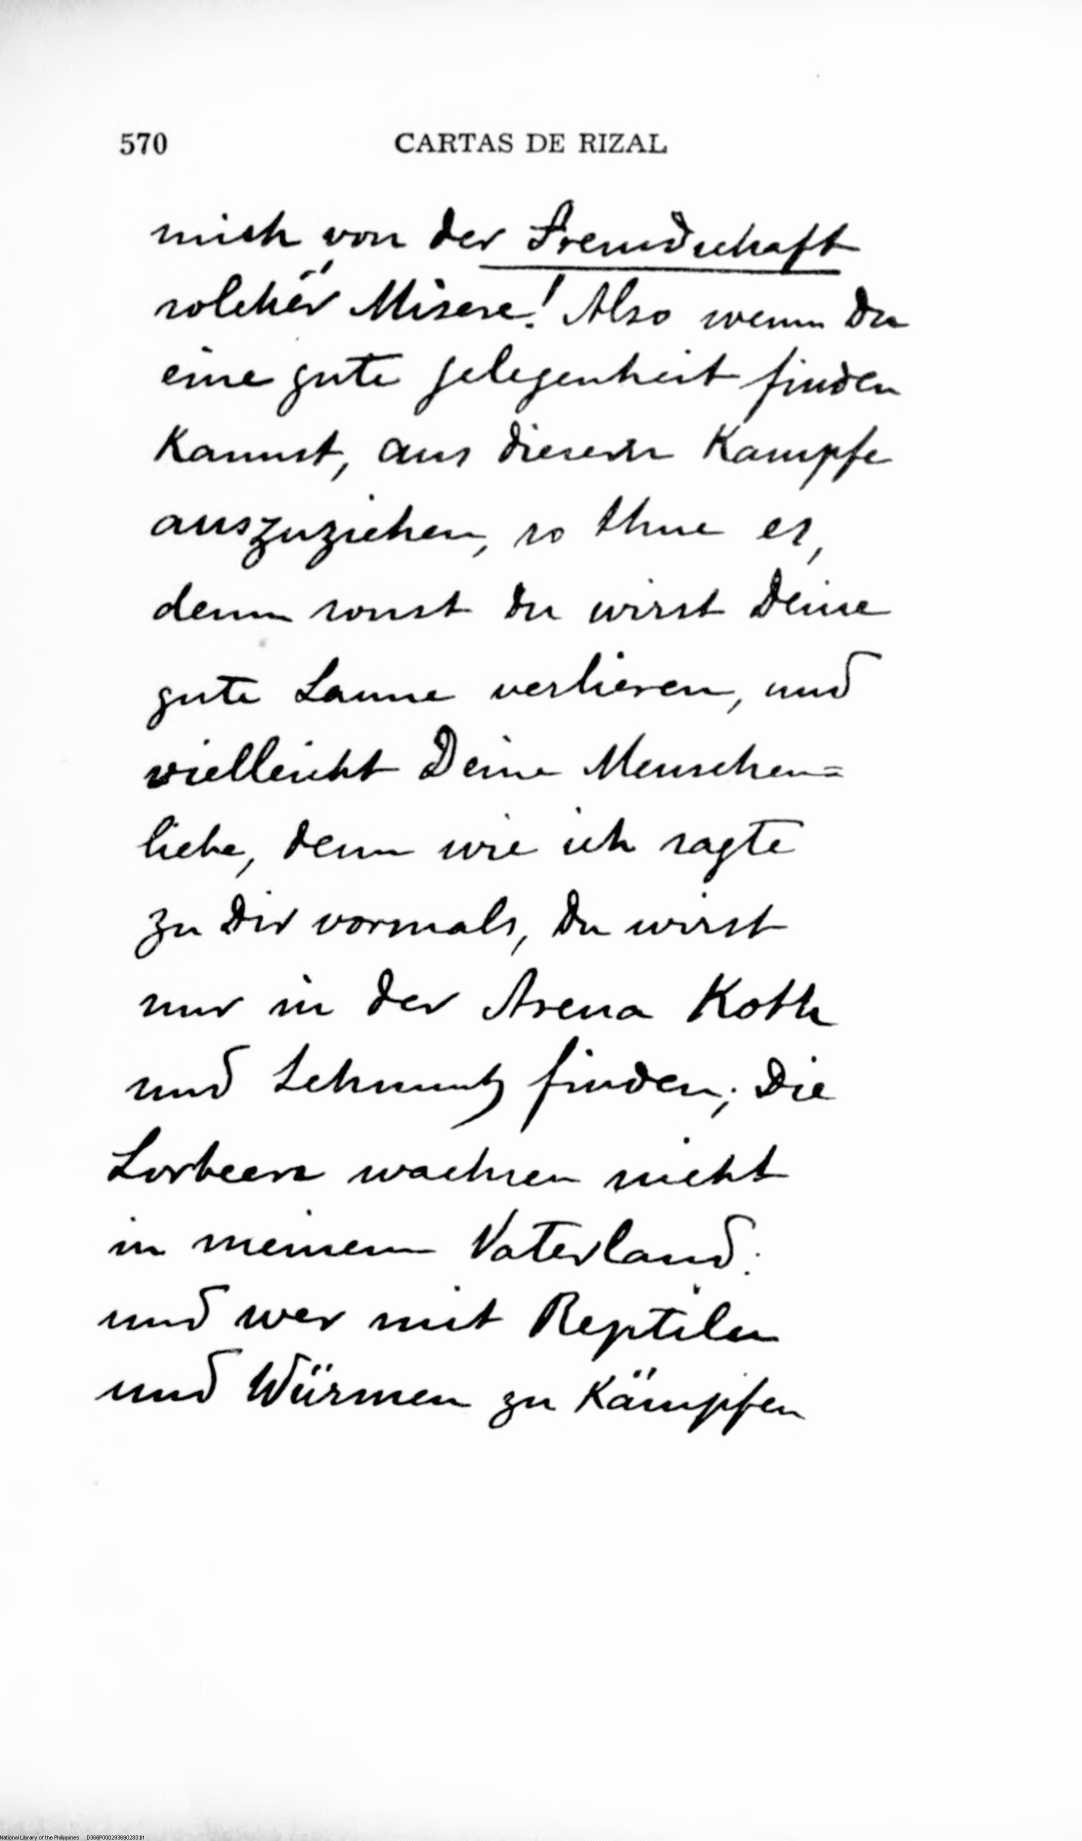 570 CARTAS DE RIZAL
mich von der Freundschaft
solcher Misere! Also wenn Du
eine gute gelegenheit finden
Kannst, aus diesem Kampfe
auszuziehen, so thue es,
denn sonst du wirst Deine
gute Laune verlieren, und
vielleicht Deine Menschen=
liebe, denn wie ich sagte
zu Dir vormals, Du wirst
nur in der Arena Koth
und Schmutz finden; Die
Lorbeern wachsen nicht
in meinem Vaterland:
und wer mit Reptilen
und Würmen zu Kämpfen